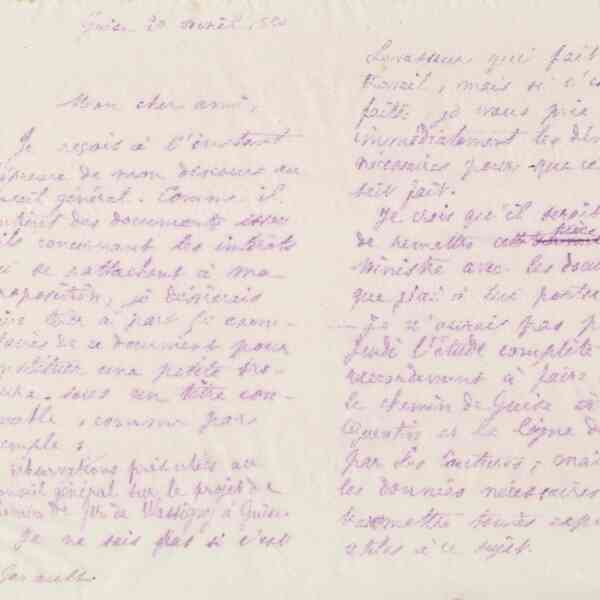 Guise 20 avril 80
Mon cher ami,
Je reçois à l'instant
de mon discours au
conseil général. Comme il
contient des documents
concernant les intérêts
qui se rattachent à ma
proposition, je désirerais
tirer à part
de ce document pour
constituer une petite bro-
chure sous un titre con-
venable, comme par
exemple :
observations présentées au
Conseil général sur le projet de
chemin de fer de Wassigny à Guise.
Je ne sais pas si c'est
Levasseur qui fait
travail, mais si c'es
faite je vous prie
immédiatement les dém
nécessaires pour que ce
soit fait.
Je crois qu'il serait
de remettre cette pièce
ministre avec les docu
que j'ai à lui porter
Je n'aurais pas p
jeudi l'étude complète
raccordement à faire
le chemin de Guise à
Quentin et la ligne d
par les ; mai
les données nécessaires
utiles à ce sujet.